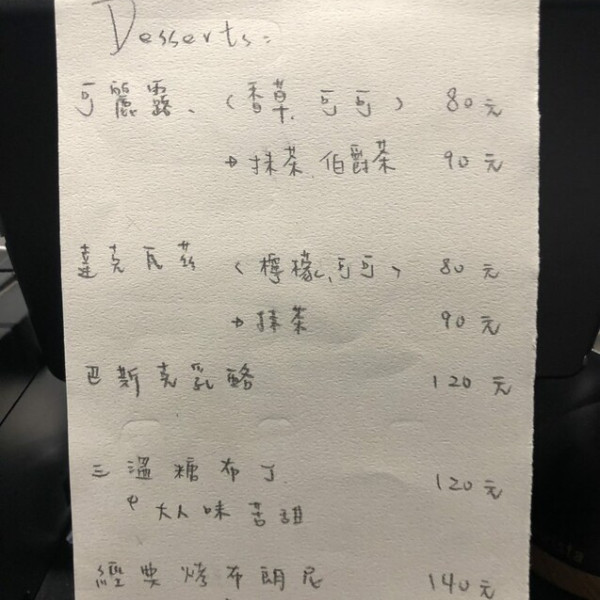 Desserts:
可麗露、(香草、可可) 80元
→抹茶、伯爵茶 90元
達克瓦茲 (檸檬、可可) 80元
→抹茶 90元
巴斯克乳酪 120元
三溫糖布丁 120元
大人味苦甜
經典烤布朗尼 140元